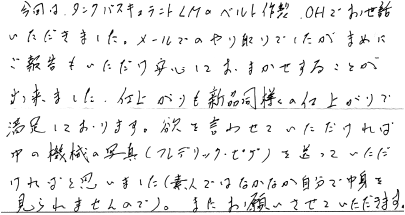 今回は、タンクバスキュラントLMのベルト作製、OHでお世話
いただきました。メールでのやり取りでしたがまめに
ご報告もいただけ安心しておまかせすることが
出来ました。仕上がりも新品同様の仕上がりで
満足しております。欲を言わせていただければ
中の機械の写真(フレデリック・ピゲ)を送っていただ
ければと思いました(素人ではなかなか自分で中身を
見られませんので)。またお願いさせていただきます。